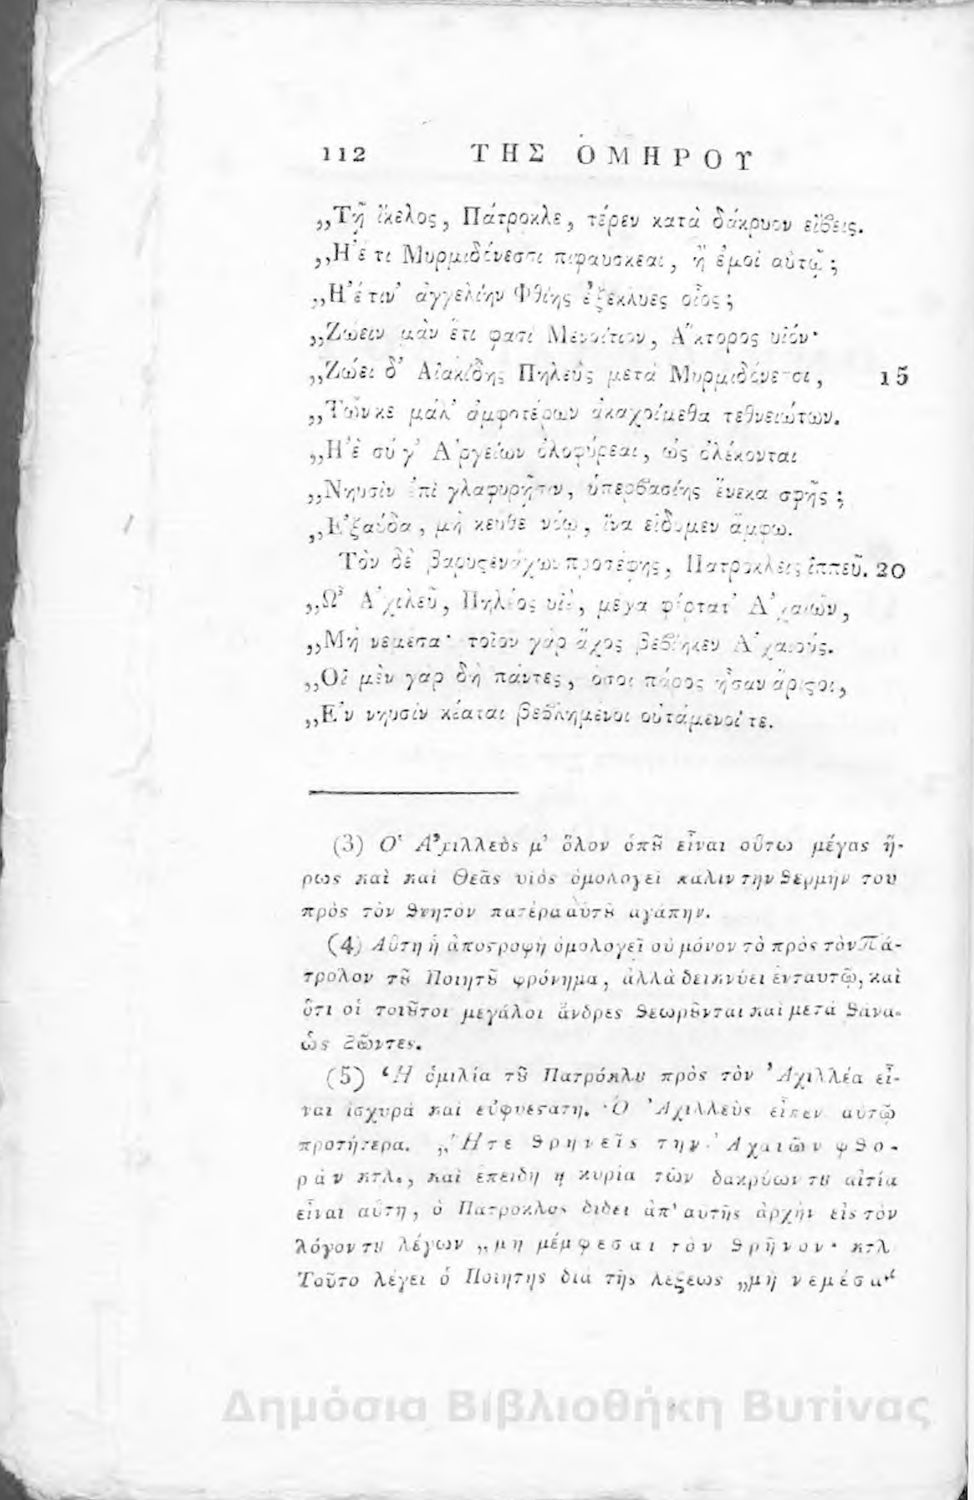 112 ΤΗΣ ὉΜΗΡΟΥ
„Τῇ ἴκελος, Πάτροκλε, τέρεν κατὰ δάκρυον εἴβεις.
„Ἠέ τι Μυρμιδόνεσσι πιφαύσκεαι, ἢ ἐμοὶ αὐτῷ;
„Ἠέ τιν' ἀγγελίην Φθίης ἐξέκλυες οἶος;
„Ζώειν μὰν ἔτι φασὶ Μενοίτιον, Ἄκτορος υἱόν·
„Ζώει δ' Αἰακίδης Πηλεὺς μετὰ Μυρμιδόνεσσι, 15
„Τῶν κε μάλ' ἀμφοτέρων ἀκαχοίμεθα τεθνειώτων.
„Ἠὲ σύ γ' Ἀργείων ὀλοφύρεαι, ὡς ὀλέκονται
„Νηυσὶν ἐπὶ γλαφυρῇσιν, ὑπερβασίης ἕνεκα σφῆς;
„Ἐξαύδα, μὴ κεῦθε νόῳ, ἵνα εἴδομεν ἄμφω.
Τὸν δὲ βαρυστενάχων προσέφης, Πατρόκλεις ἱππεῦ. 20
„Ὦ Ἀχιλεῦ, Πηλέος υἱέ, μέγα φέρτατ' Ἀχαιῶν,
„Μὴ νεμέσα· τοῖον γὰρ ἄχος βεβίηκεν Ἀχαιούς.
„Οἱ μὲν γὰρ δὴ πάντες, ὅσοι πάρος ἦσαν ἄριστοι,
„Ἐν νηυσὶν κέαται βεβλημένοι οὐτάμενοί τε.
(3) Ὁ Ἀχιλλεὺς μ' ὅλον ὁπȣ̃ εἶναι οὕτω μέγας ἥ-
ρως καὶ καὶ Θεᾶς υἱὸς ὁμολογεῖ καλιν την θερμήν του
πρὸς τὸν θνητόν πατέρα αὐτȣ̃ ἀγάπην.
(4) Αὕτη ἡ ἀποστροφὴ ὁμολογεῖ οὐ μόνον τὸ πρὸς τὸν Πά-
τροκλον τȣ̃ Ποιητȣ̃ φρόνημα, ἀλλὰ δεικνύει ἐνταυτῷ, καὶ
ὅτι οἱ τοιȣ̃τοι μεγάλοι ἄνδρες θεωρȣ̃νται καὶ μετὰ θάνα-
ὡς ζῶντες.
(5) Ἡ ὁμιλία τȣ̃ Πατρόκλȣ πρὸς τὸν Ἀχιλλέα εἶ-
ναι ἰσχυρὰ καὶ εὐφυεστάτη. Ὁ Ἀχιλλεὺς εἶπεν αὐτῷ
προτήτερα. „Ἤτε θρηνεῖς την Ἀχαιῶν φθο-
ρὰν κτλ., καὶ ἐπειδὴ ἡ κυρία τῶν δακρύων τȣ αἰτία
εἶναι αὕτη, ὁ Πάτροκλος δίδει ἀπ' αὐτῆς ἀρχὴν εἰς τὸν
λόγον τȣ λέγων „μὴ μέμφεσαι τὸν θρῆνον· κτλ
Τοῦτο λέγει ὁ Ποιητὴς διὰ τῆς λέξεως „μὴ νεμέσα"
Δημόσια Βιβλιοθήκη Βυτίνας